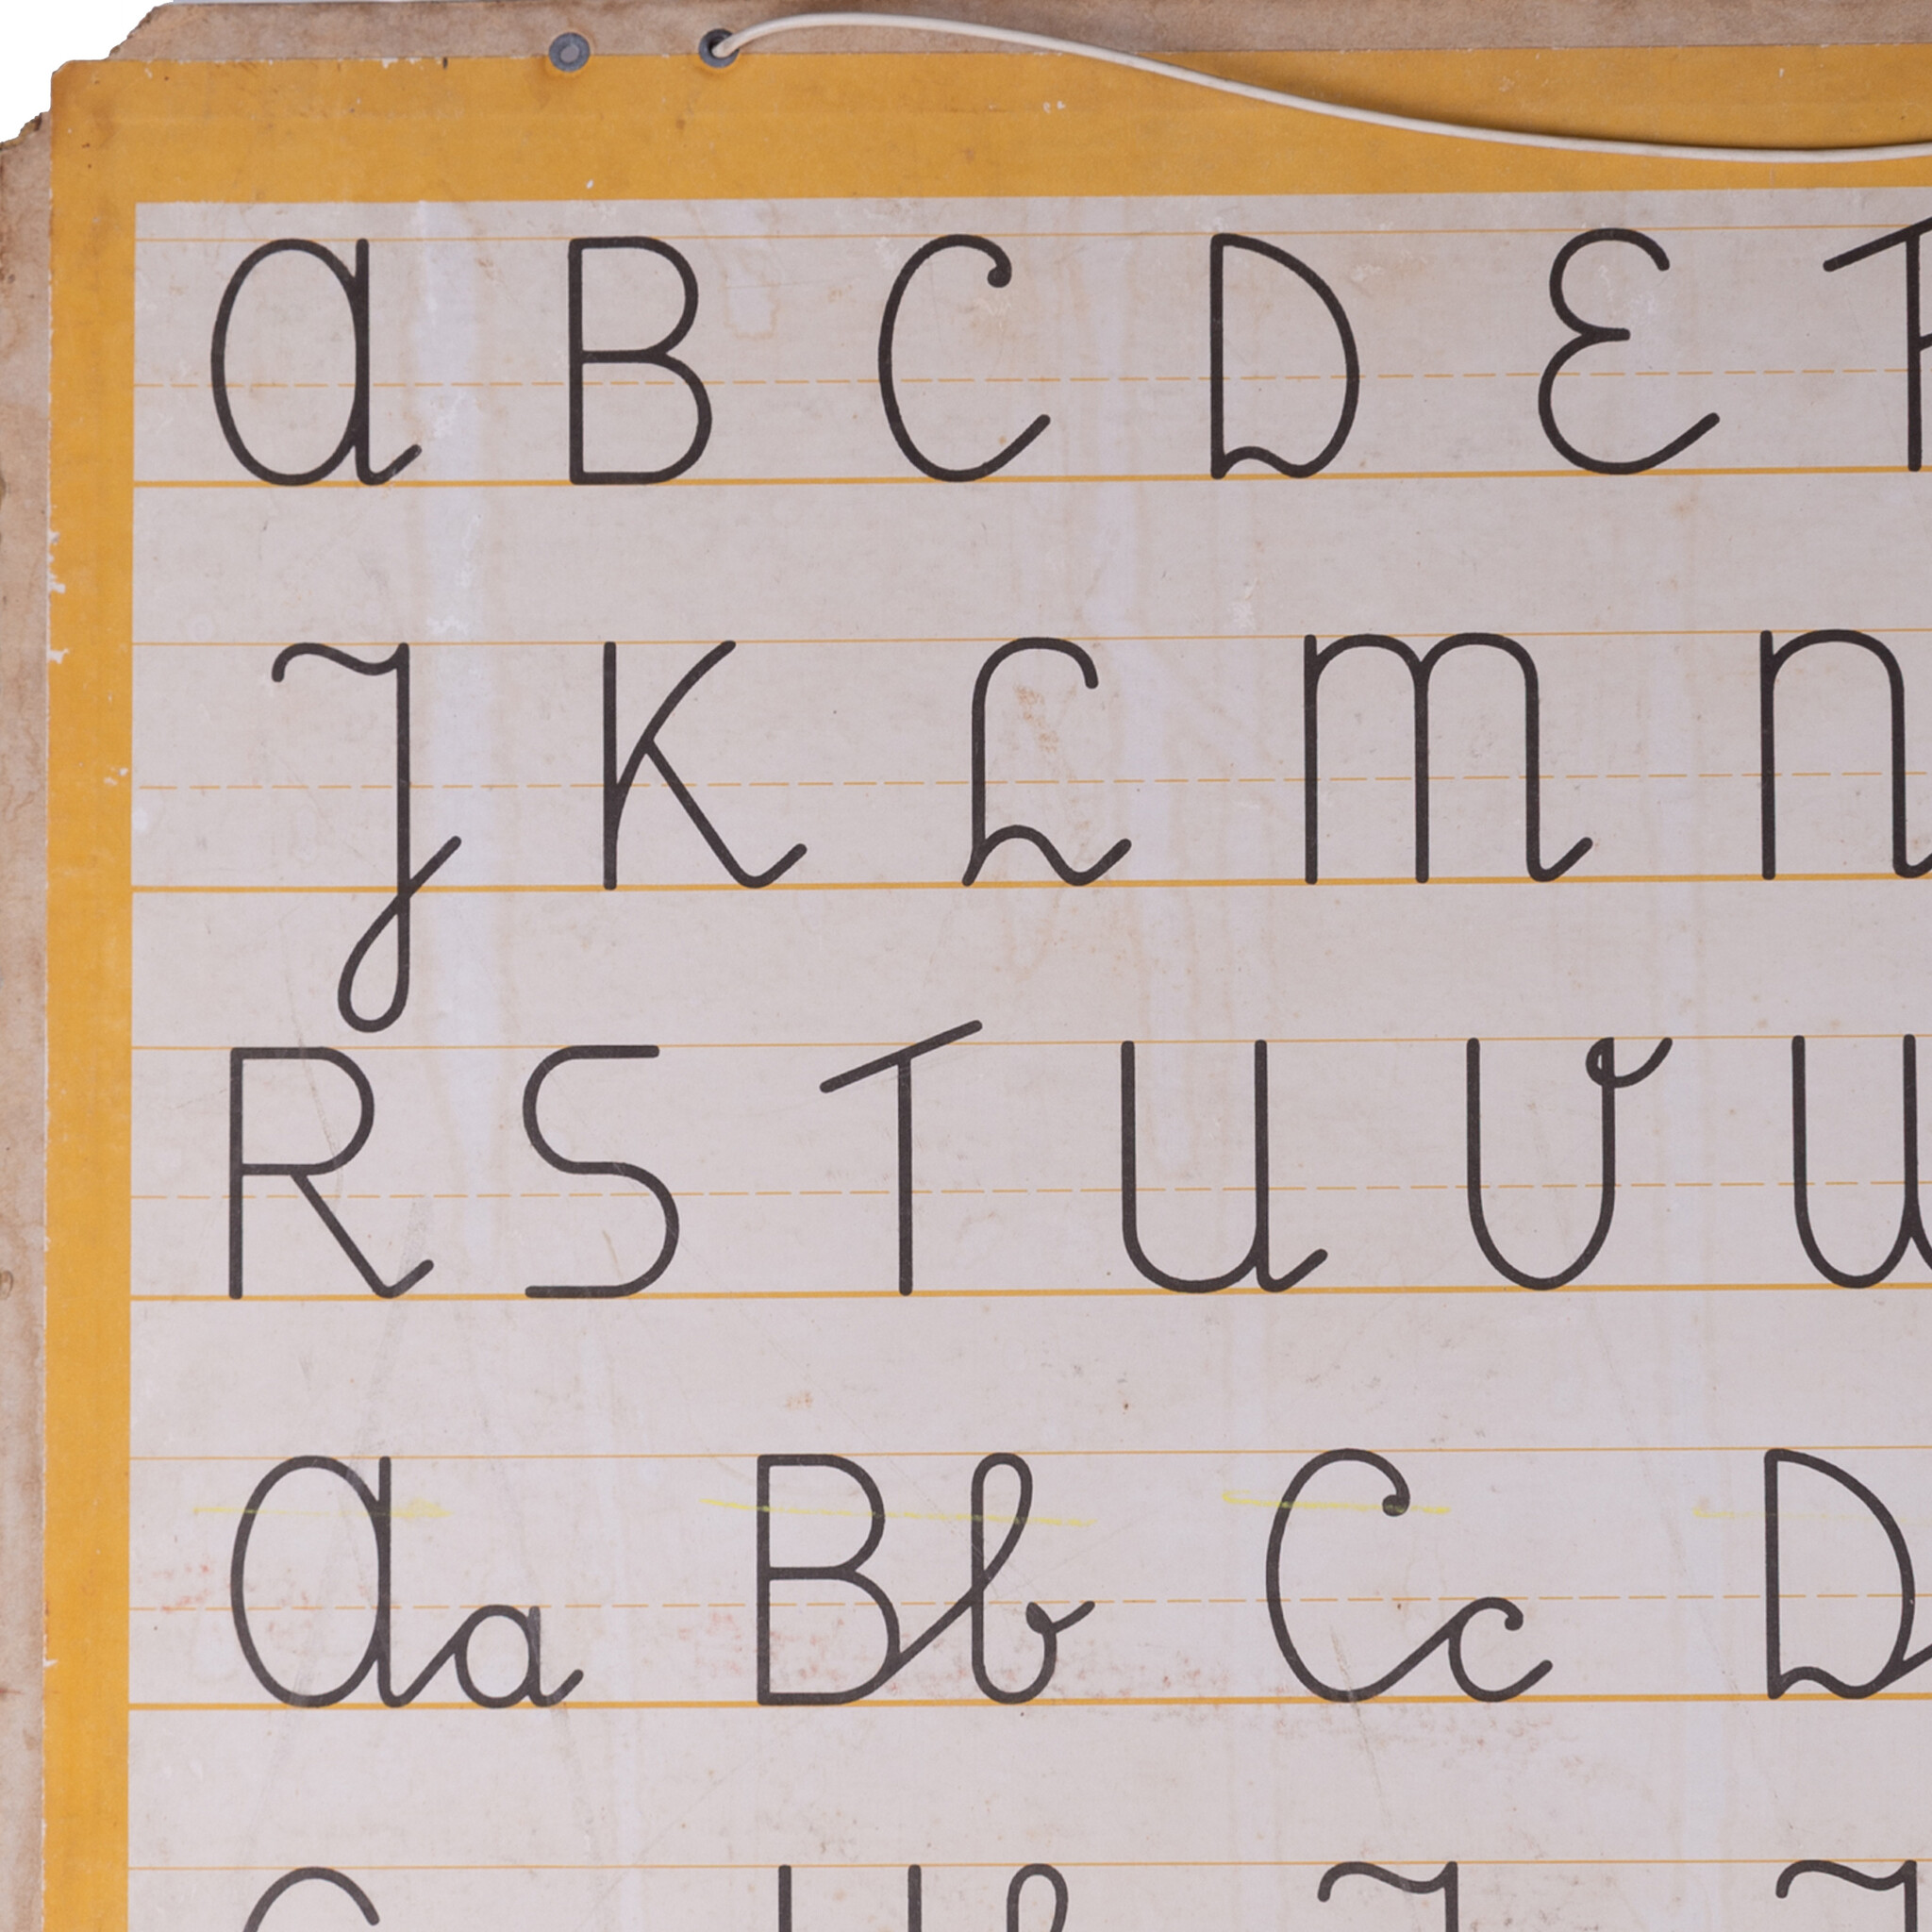 A B C D E F
J K L M N
R S T U V
Aa Bb Cc D